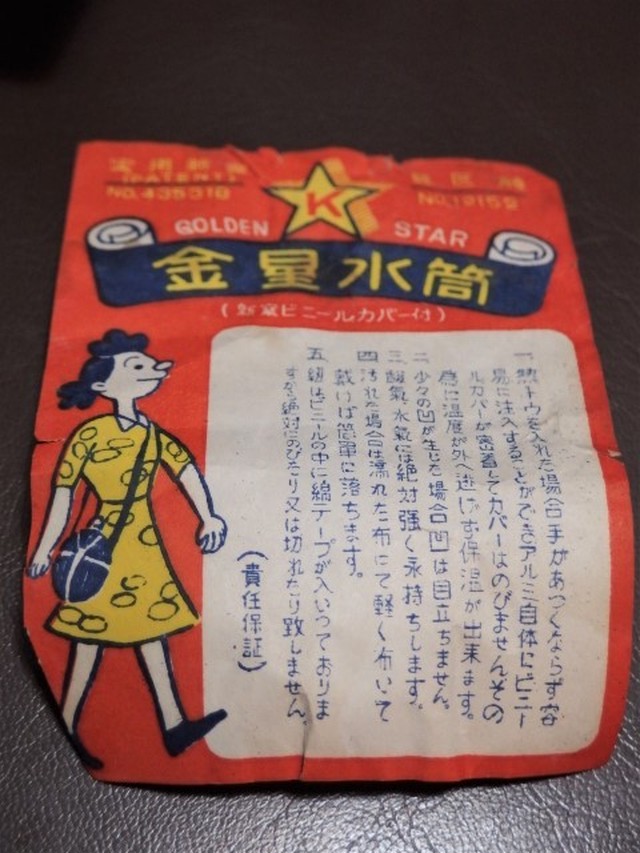 実用新案
(PATENT)
NO.435318
K
GOLDEN STAR
金星水筒
(新案ビニールカバー付)
一、熱トウを入れた場合手があつくならず容
易に注入することができアルミ自体にビニー
ルカバーが密着してカバーはのびませんその
為に温度が外へ逃げず保温が出来ます。
二、少々の凹が生じた場合凹は目立ちません。
三、酸氣、水氣には絶対強く永持ちします。
四、汚れた場合は濡れた布にて軽く布いて
戴けば簡單に落ちます。
五、紐はビニールの中に綿テープが入いつておりま
すから絶対にのびたり又は切れたり致しません。
(責任保証)